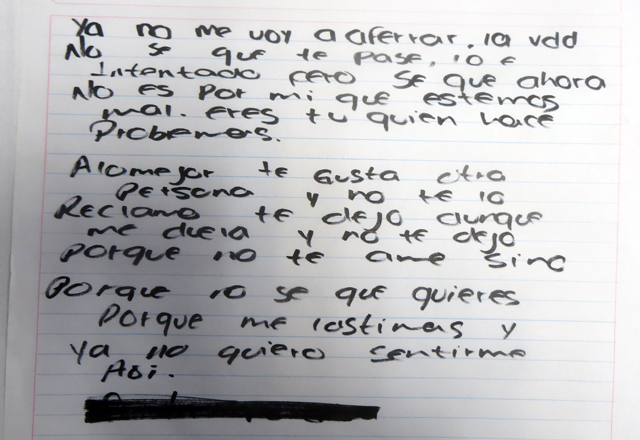 Ya no me voy a aferrar. la vdd
No se que te pase, lo e
Intentado pero se que ahora
No es por mi que estemos
mal. eres tu quien hace
Problemas.
Alomejor te gusta otra
Persona y no te lo
Reclamo te dejo aunque
me duela y no te dejo
porque no te ame sino
Porque no se que quieres
Porque me lastimas y
ya no quiero sentirme
Asi.